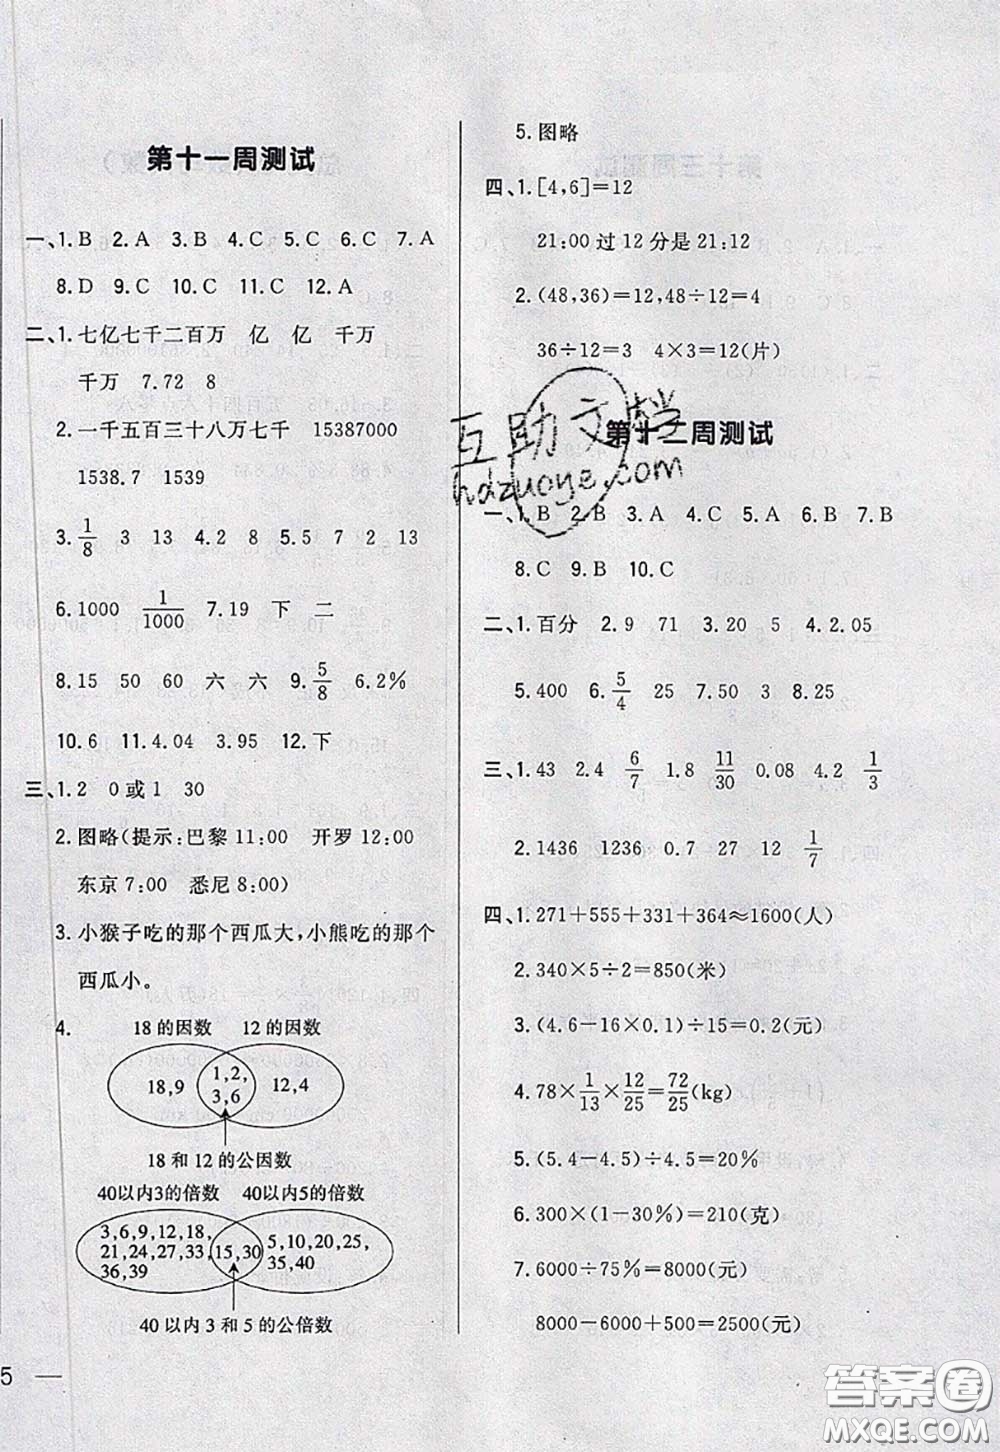 第十一周测试
一、1.B 2.A 3.B 4.C 5.C 6.C 7.A
8.D 9.C 10.C 11.C 12.A
二、1.七亿七千二百万 亿 亿 千万
千万 7.72 8
2.一千五百三十八万七千 15387000
1538.7 1539
3.1/8 3 13 4.2 8 5.5 7 2 13
6.1000 1/1000 7.19 下 二
8.15 50 60 六 六 9.5/8 6.2%
10.6 11.4.04 3.95 12.下
三、1.2 0或1 30
2.图略(提示:巴黎11:00 开罗12:00
东京7:00 悉尼8:00)
3.小猴子吃的那个西瓜大,小熊吃的那个
西瓜小。
4.
18的因数 12的因数
18,9 1,2,3,6 12,4
18和12的公因数
40以内3的倍数 40以内5的倍数
3,6,9,12,18,
21,24,27,33,
36,39
15,30
5,10,20,25,
35,40
40以内3和5的公倍数
5
5.图略
四、1.[4,6]=12
21:00过12分是21:12
2.(48,36)=12,48÷12=4
36÷12=3 4×3=12(片)
第十二周测试
一、1.B 2.B 3.A 4.C 5.A 6.B 7.B
8.C 9.B 10.C
二、1.百分 2.9 71 3.20 5 4.2.05
5.400 6.5/4 25 7.50 3 8.25
三、1.43 2.4 6/7 1.8 11/30 0.08 4.2 1/3
2.1436 1236 0.7 27 12 1/7
四、1.271+555+331+364≈1600(人)
2.340×5÷2=850(米)
3.(4.6-16×0.1)÷15=0.2(元)
4.78×1/13×12/25=72/25(kg)
5.(5.4-4.5)÷4.5=20%
6.300×(1-30%)=210(克)
7.6000÷75%=8000(元)
8000-6000+500=2500(元)
互助文档
hdzuoye.com
答案圈
MXQE.COM